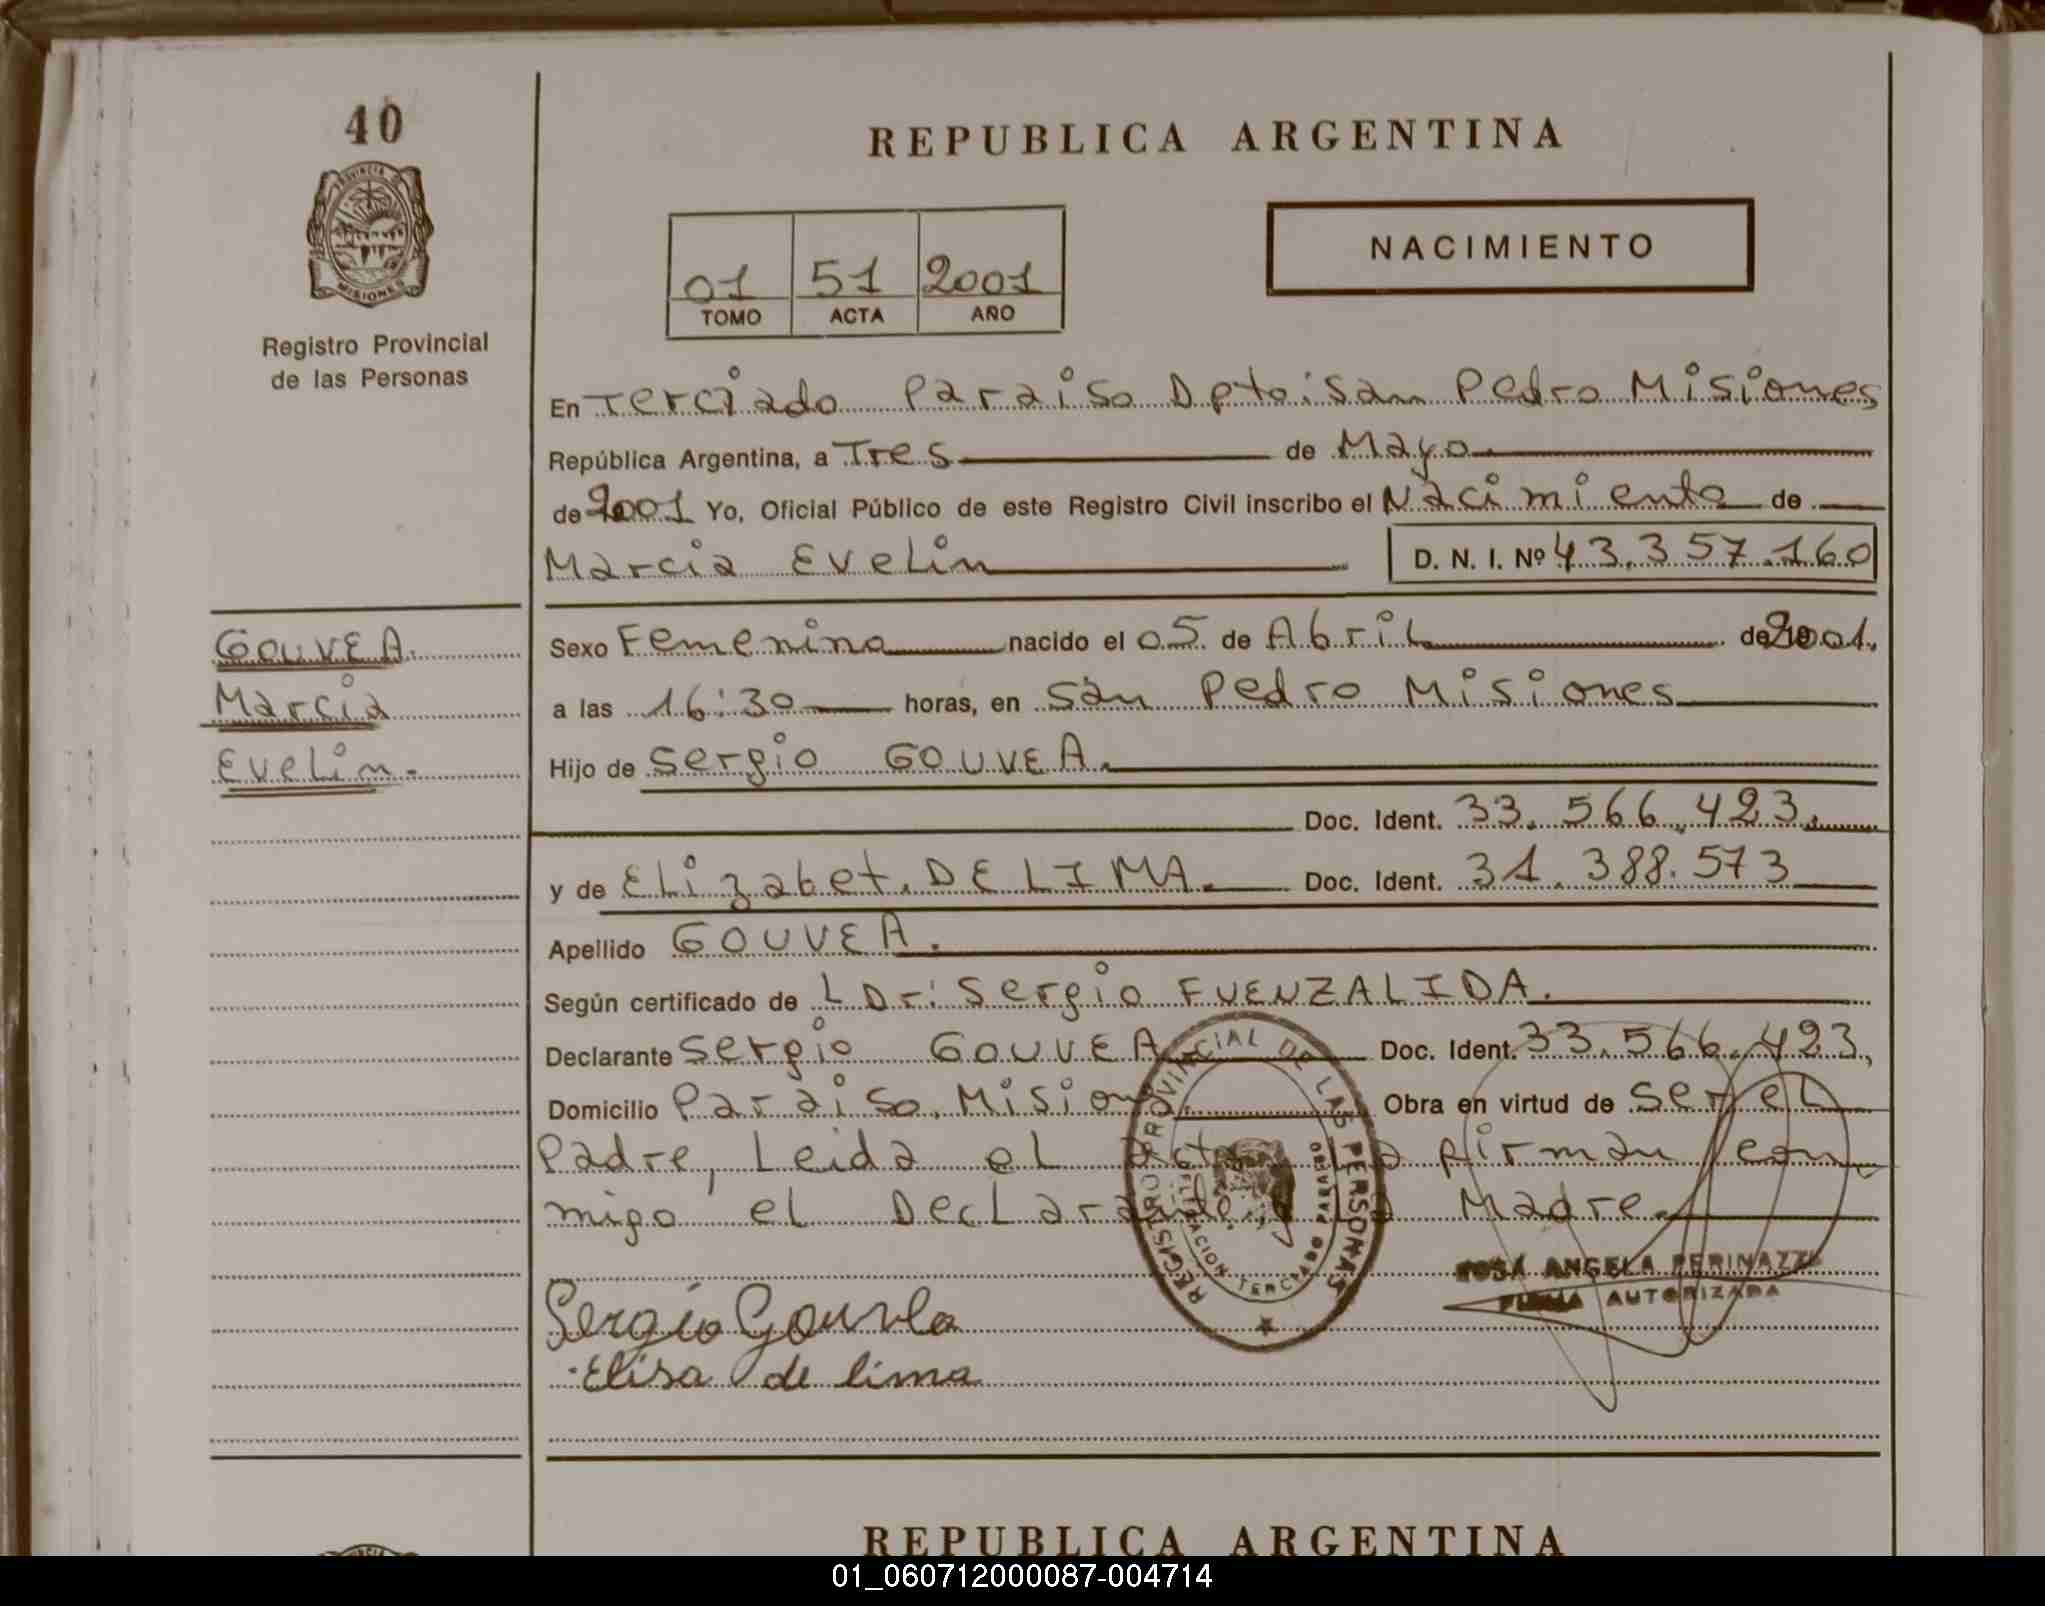 40
PROVINCIA DE
MISIONES
Registro Provincial
de las Personas
REPUBLICA ARGENTINA
01 51 2001
TOMO ACTA AÑO
NACIMIENTO
En Terciado Paraiso Dpto: San Pedro Misiones
República Argentina, a Tres de Mayo
de 2001 Yo, Oficial Público de este Registro Civil inscribo el Nacimiento de
Marcia Evelin D. N. I. Nº 43.357.160
GOUVEA.
Marcia
Evelin.-
Sexo Femenino nacido el 05 de Abril de 2001.
a las 16:30 horas, en San Pedro Misiones
Hijo de Sergio GOUVEA.
Doc. Ident. 33.566.423.
y de Elizabet. DE LIMA. Doc. Ident. 31.388.573
Apellido GOUVEA.
Según certificado de L Dr: Sergio FUENZALIDA.
Declarante Sergio GOUVEA Doc. Ident. 33.566.423,
Domicilio Paraiso. Mision Obra en virtud de ser el
Padre, Leida el Acta la firman con
migo el Declarante y la Madre.
REGISTRO PROVINCIAL DE LAS PERSONAS
TERCIADO PARAISO
ROSA ANGELA PERINAZZI
FIRMA AUTORIZADA
Sergio Gouvea
Elisa de lima
REPUBLICA ARGENTINA
01_060712000087-004714